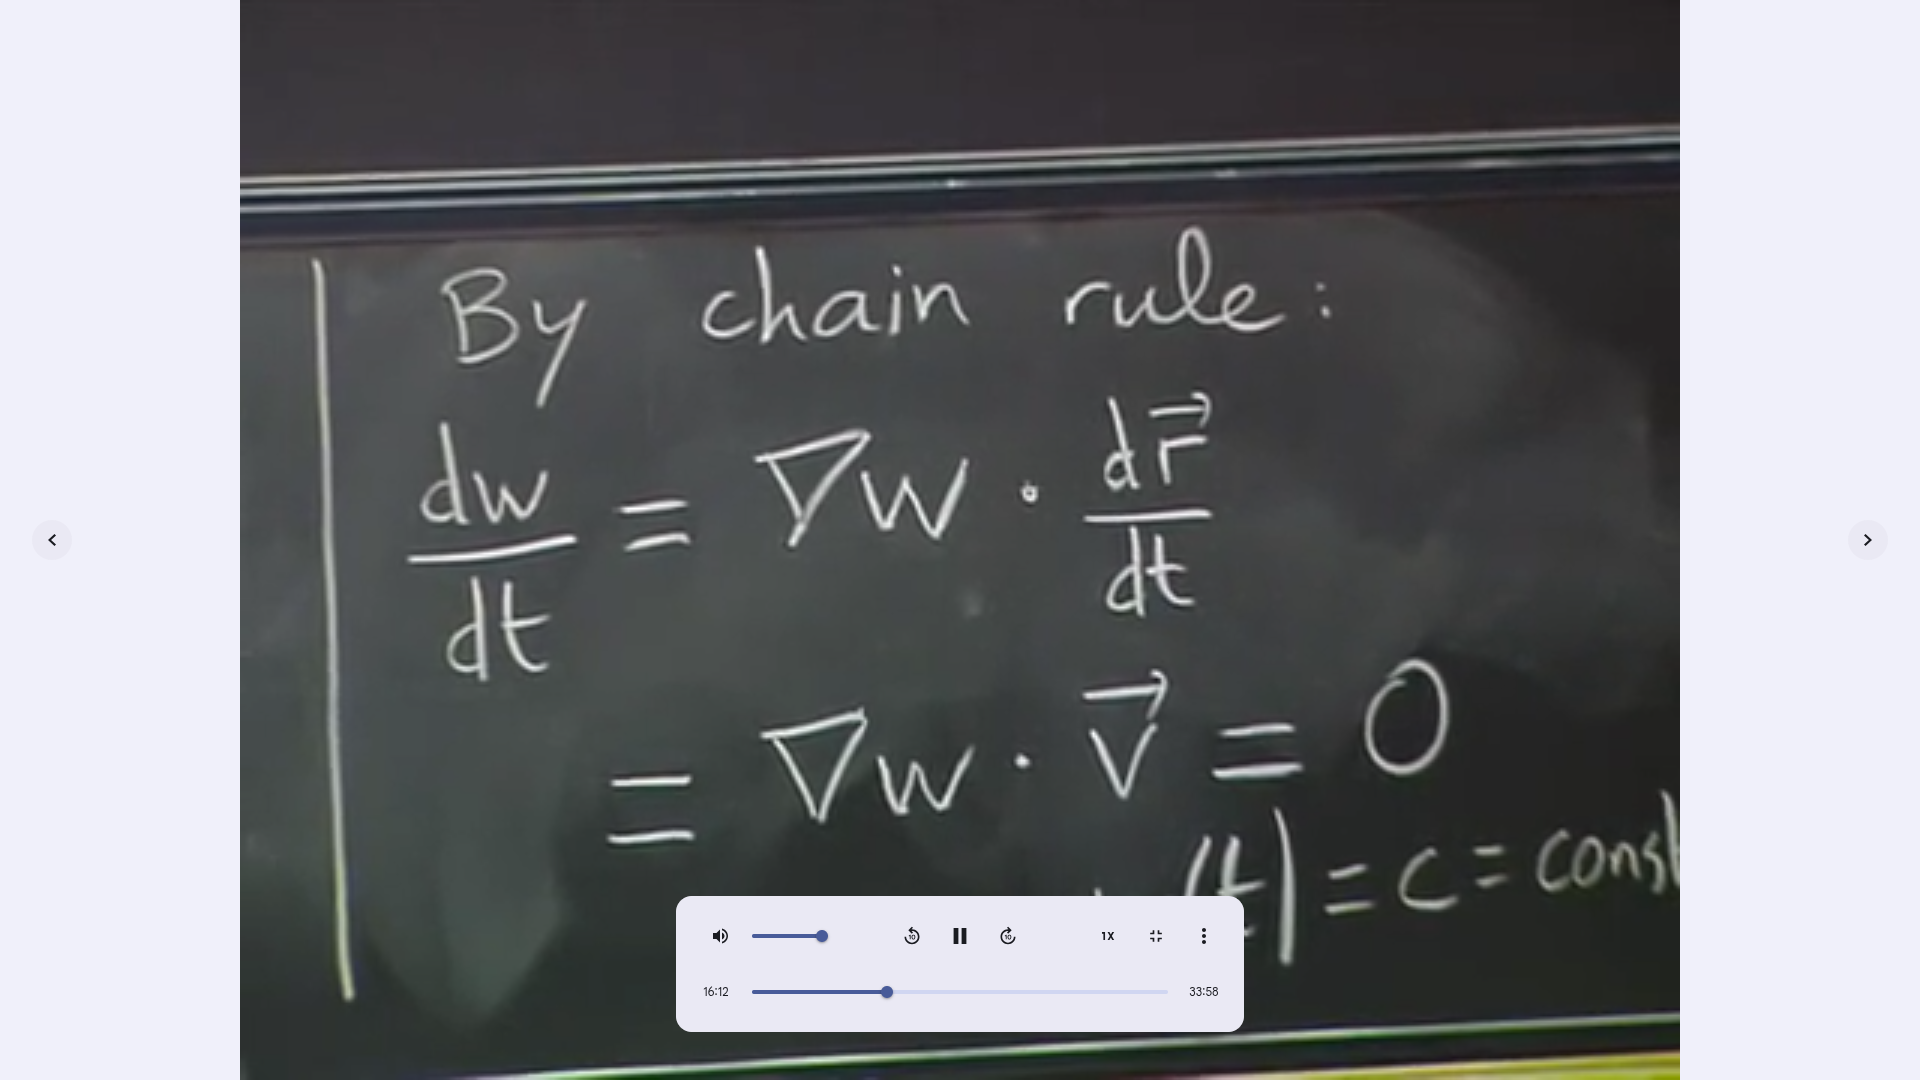 By chain rule:
dw/dt = ∇w · dr⃗/dt
= ∇w · v⃗ = 0
(t) = c = const
10
10
1X
16:12
33:58